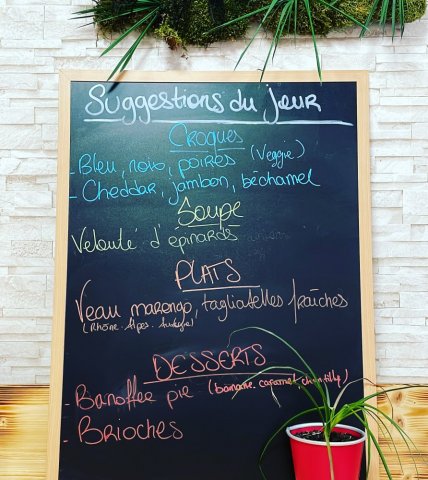 Suggestions du jour
Croques
- Bleu, noix, poires (Veggie)
- Cheddar, jambon, béchamel
Soupe
Velouté d'épinards
PLATS
Veau marengo, tagliatelles fraîches
(Rhône-Alpes-Auvergne)
DESSERTS
- Banoffee pie (banane, caramel, chantilly)
- BRIOCHES